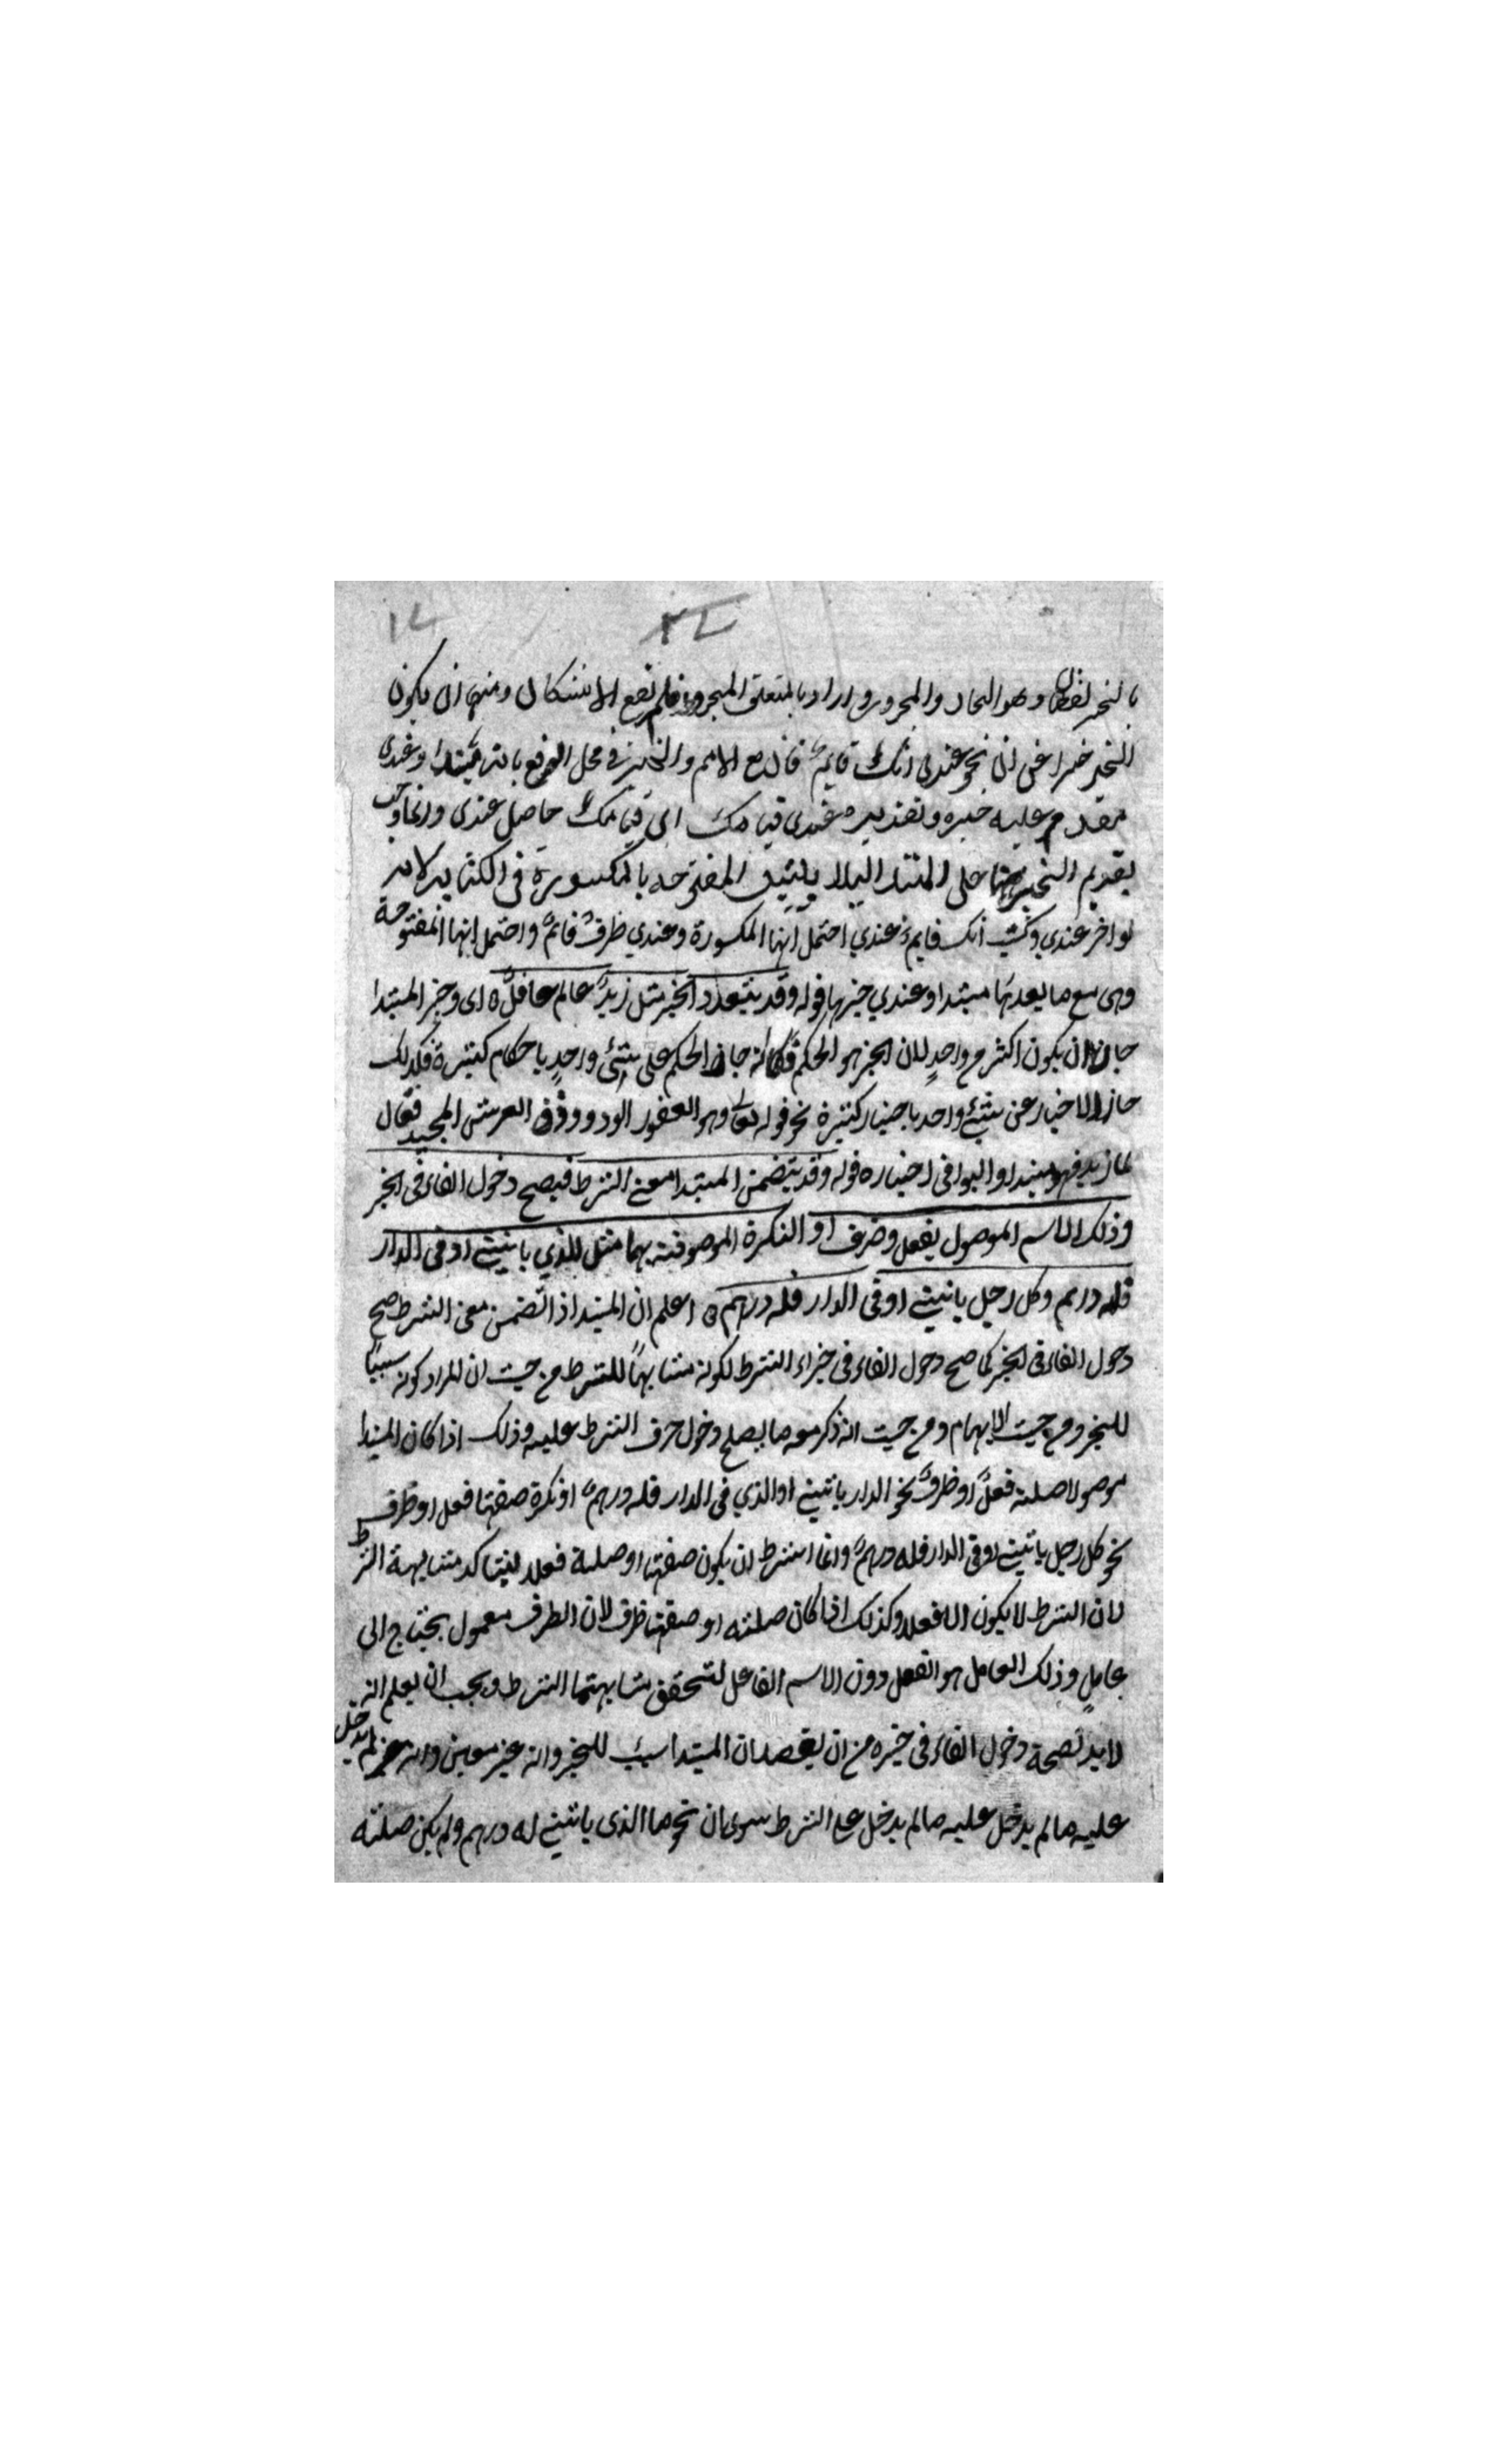 ١٤ ٢٤
بالخبر لفظا وهو الجار والمجرور واراد بالمتعلق المجرور فلم يقع الاشكال ومنها ان يكون
الخبر خبرا عن ان نحو عندي انك قايم فان مع الاسم والخبر في محل الرفع بانه مبتدا وعندي
مقدم عليه خبره وتقديره عندي قيامك اي قيامك حاصل عندي وانما وجب
تقديم الخبر هنا على المبتدا ليلا يلتبس المفتوحه بالمكسورة في الكتابه لانه
لو اخر عندي وكتب انك قايم عندي احتمل انها المكسورة وعندي ظرف قائم واحتمل انها المفتوحة
وهي مع ما بعدها مبتدا وعندي خبرها قوله وقد يتعدد الخبر مثل زيد عالم عاقل ه اي وخبر المبتدا
جاز ان يكون اكثر من واحد لان الخبر هو الحكم فكما انه جاز الحكم على شئ واحد باحكام كثيرة فكذلك
جاز الاخبار عن شئ واحد باخبار كثيرة نحو قوله تعالى وهو الغفور الودود ذو العرش المجيد فعال
لما يريد فهو مبتدا والبواقي اخباره قوله وقد يتضمن المبتدا معنى الشرط فيصح دخول الفاء في الخبر
وذلك الاسم الموصول بفعل وضرف او النكرة الموصوفة بهما مثل الذي ياتيني او في الدار
فله درهم وكل رجل ياتيني او في الدار فله درهم ه اعلم ان المبتدا اذا تضمن معنى الشرط صح
دخول الفاء في الخبر كما صح دخول الفاء في جزاء الشرط لكونه مشابها للشرط من حيث ان المراد كونه سببا
للخبر ومن حيث الابهام ومن حيث انه ذكر معه ما يصلح دخول حرف الشرط عليه وذلك اذا كان المبتدا
موصولا صلته فعل او ظرف نحو الدار ياتيني او الذي في الدار فله درهم او نكرة صفتها فعل او ظرف
نحو كل رجل ياتيني او في الدار فله درهم وانما اشترط ان يكون صفتها او صلته فعلا ليتاكد مشابهة الشرط
لان الشرط لا يكون الا فعلا وكذلك اذا كان صلته او صفتها ظرف لان الظرف معمول يحتاج الى
عامل وذلك العامل هو الفعل دون الاسم الفاعل لتحقق مشابهتها الشرط ويجب ان يعلم انه
لا بد لصحة دخول الفاء في خبره من ان يقصد ان المبتدا سبب للخبر وانه غير معين وانه لم يدخل
عليه ما لم يدخل عليه ما لم يدخل على الشرط سوى ان نحو ما الذي ياتيني له درهم ولم يكن صلته